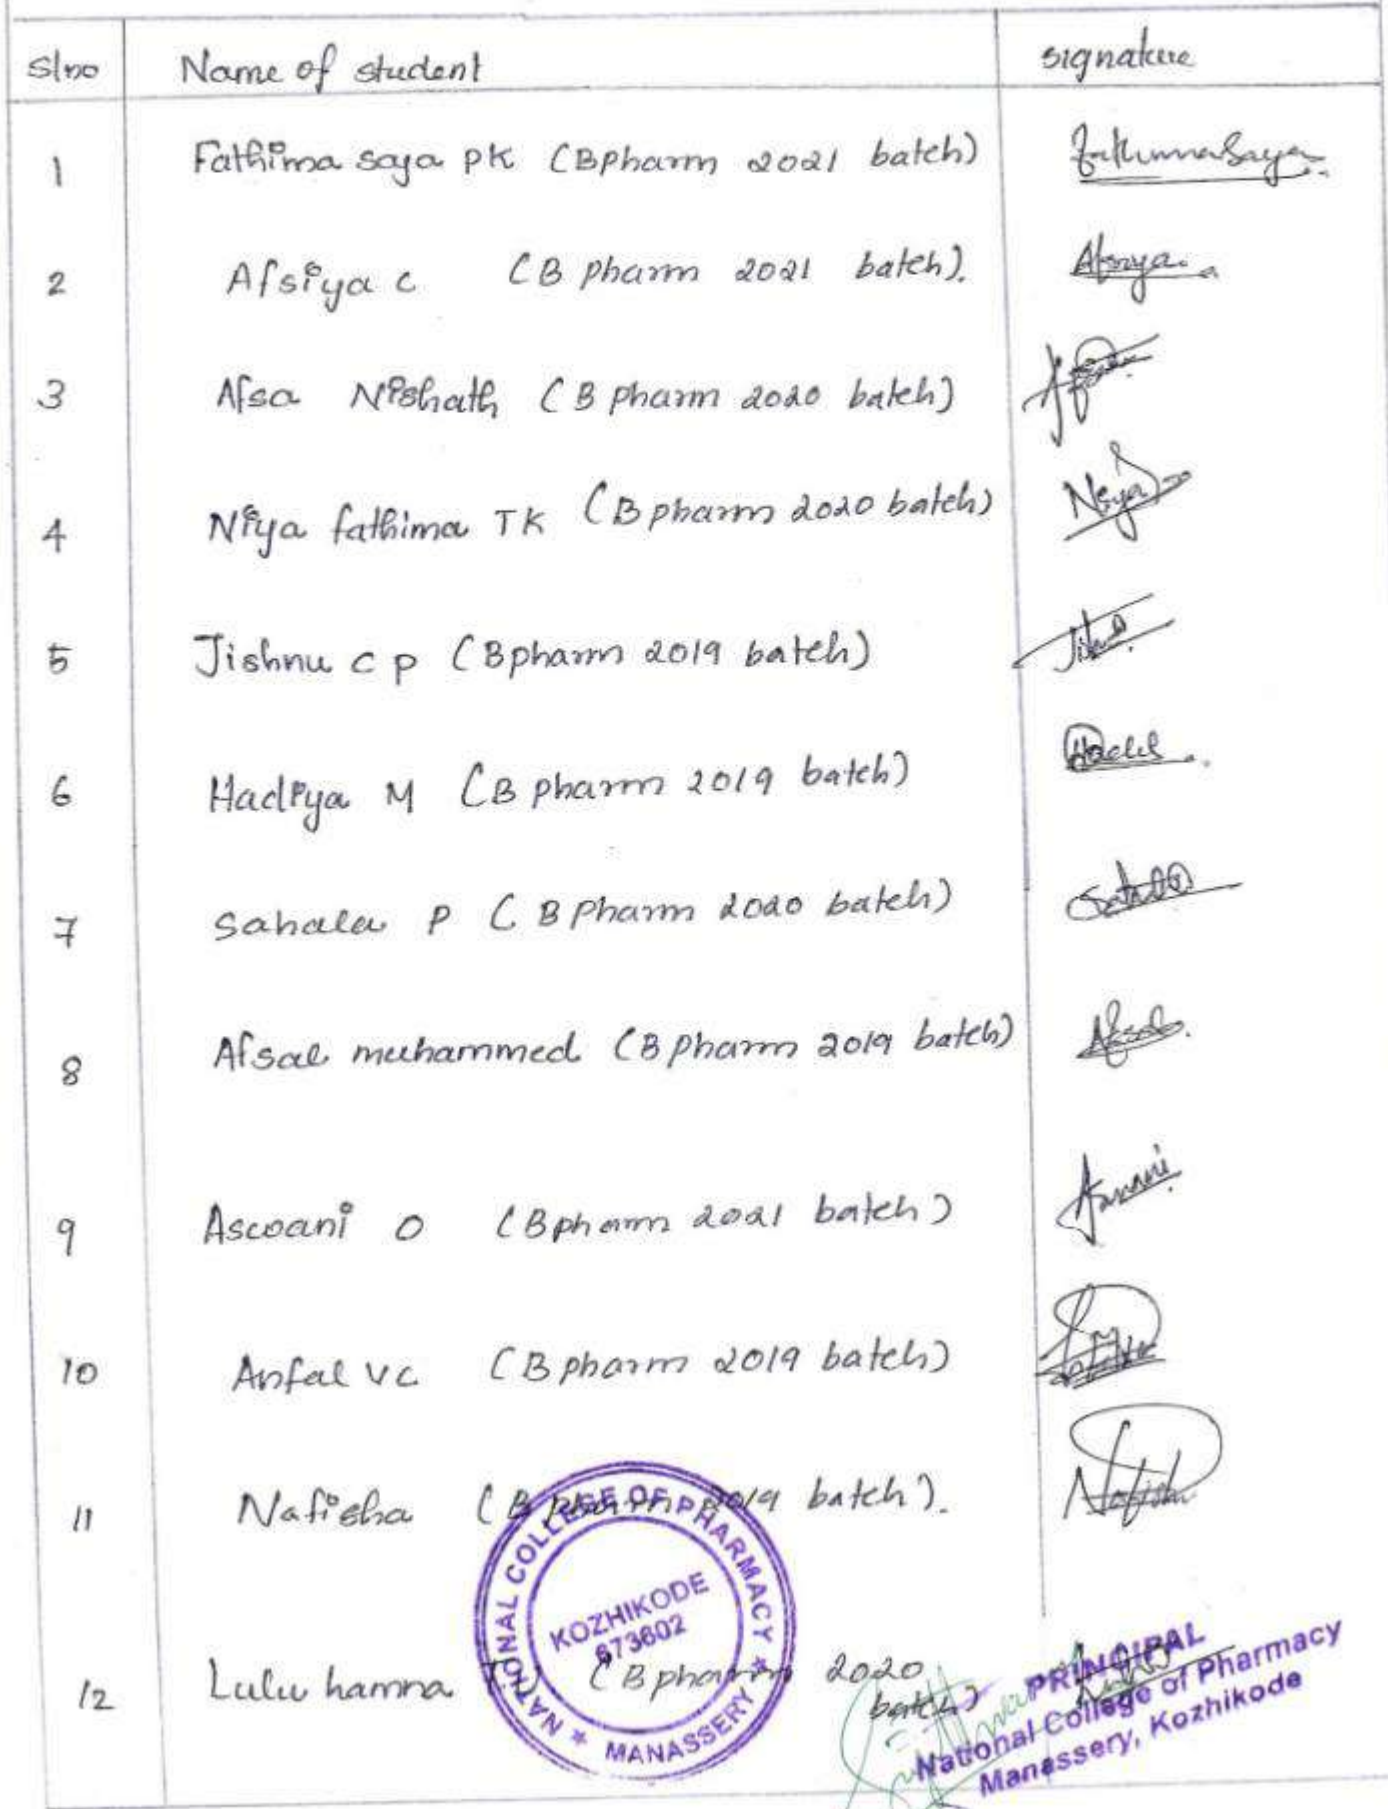 Slno Name of student signature
1 Fathima saja PK (BPharm 2021 batch) Fathima Saja
2 Afsiya C (B pharm 2021 batch). Afsiya
3 Afsa Nishath (B pharm 2020 batch)
4 Niya fathima TK (B pharm 2020 batch) Niya
5 Jishnu C P (Bpharm 2019 batch) Jishnu
6 Hadiya M (B pharm 2019 batch)
7 Sahala P (B Pharm 2020 batch) Sahala
8 Afsal muhammed (B Pharm 2019 batch) Afsal
9 Aswani O (Bpharm 2021 batch) Aswani
10 Anfal VC (B pharm 2019 batch)
11 Nafisha (B pharm 2019 batch). Nafisha
12 Lulu hamna (B pharm 2020
batch)
NATIONAL COLLEGE OF PHARMACY
KOZHIKODE
673602
* MANASSERY *
PRINCIPAL
National College of Pharmacy
Manassery, Kozhikode